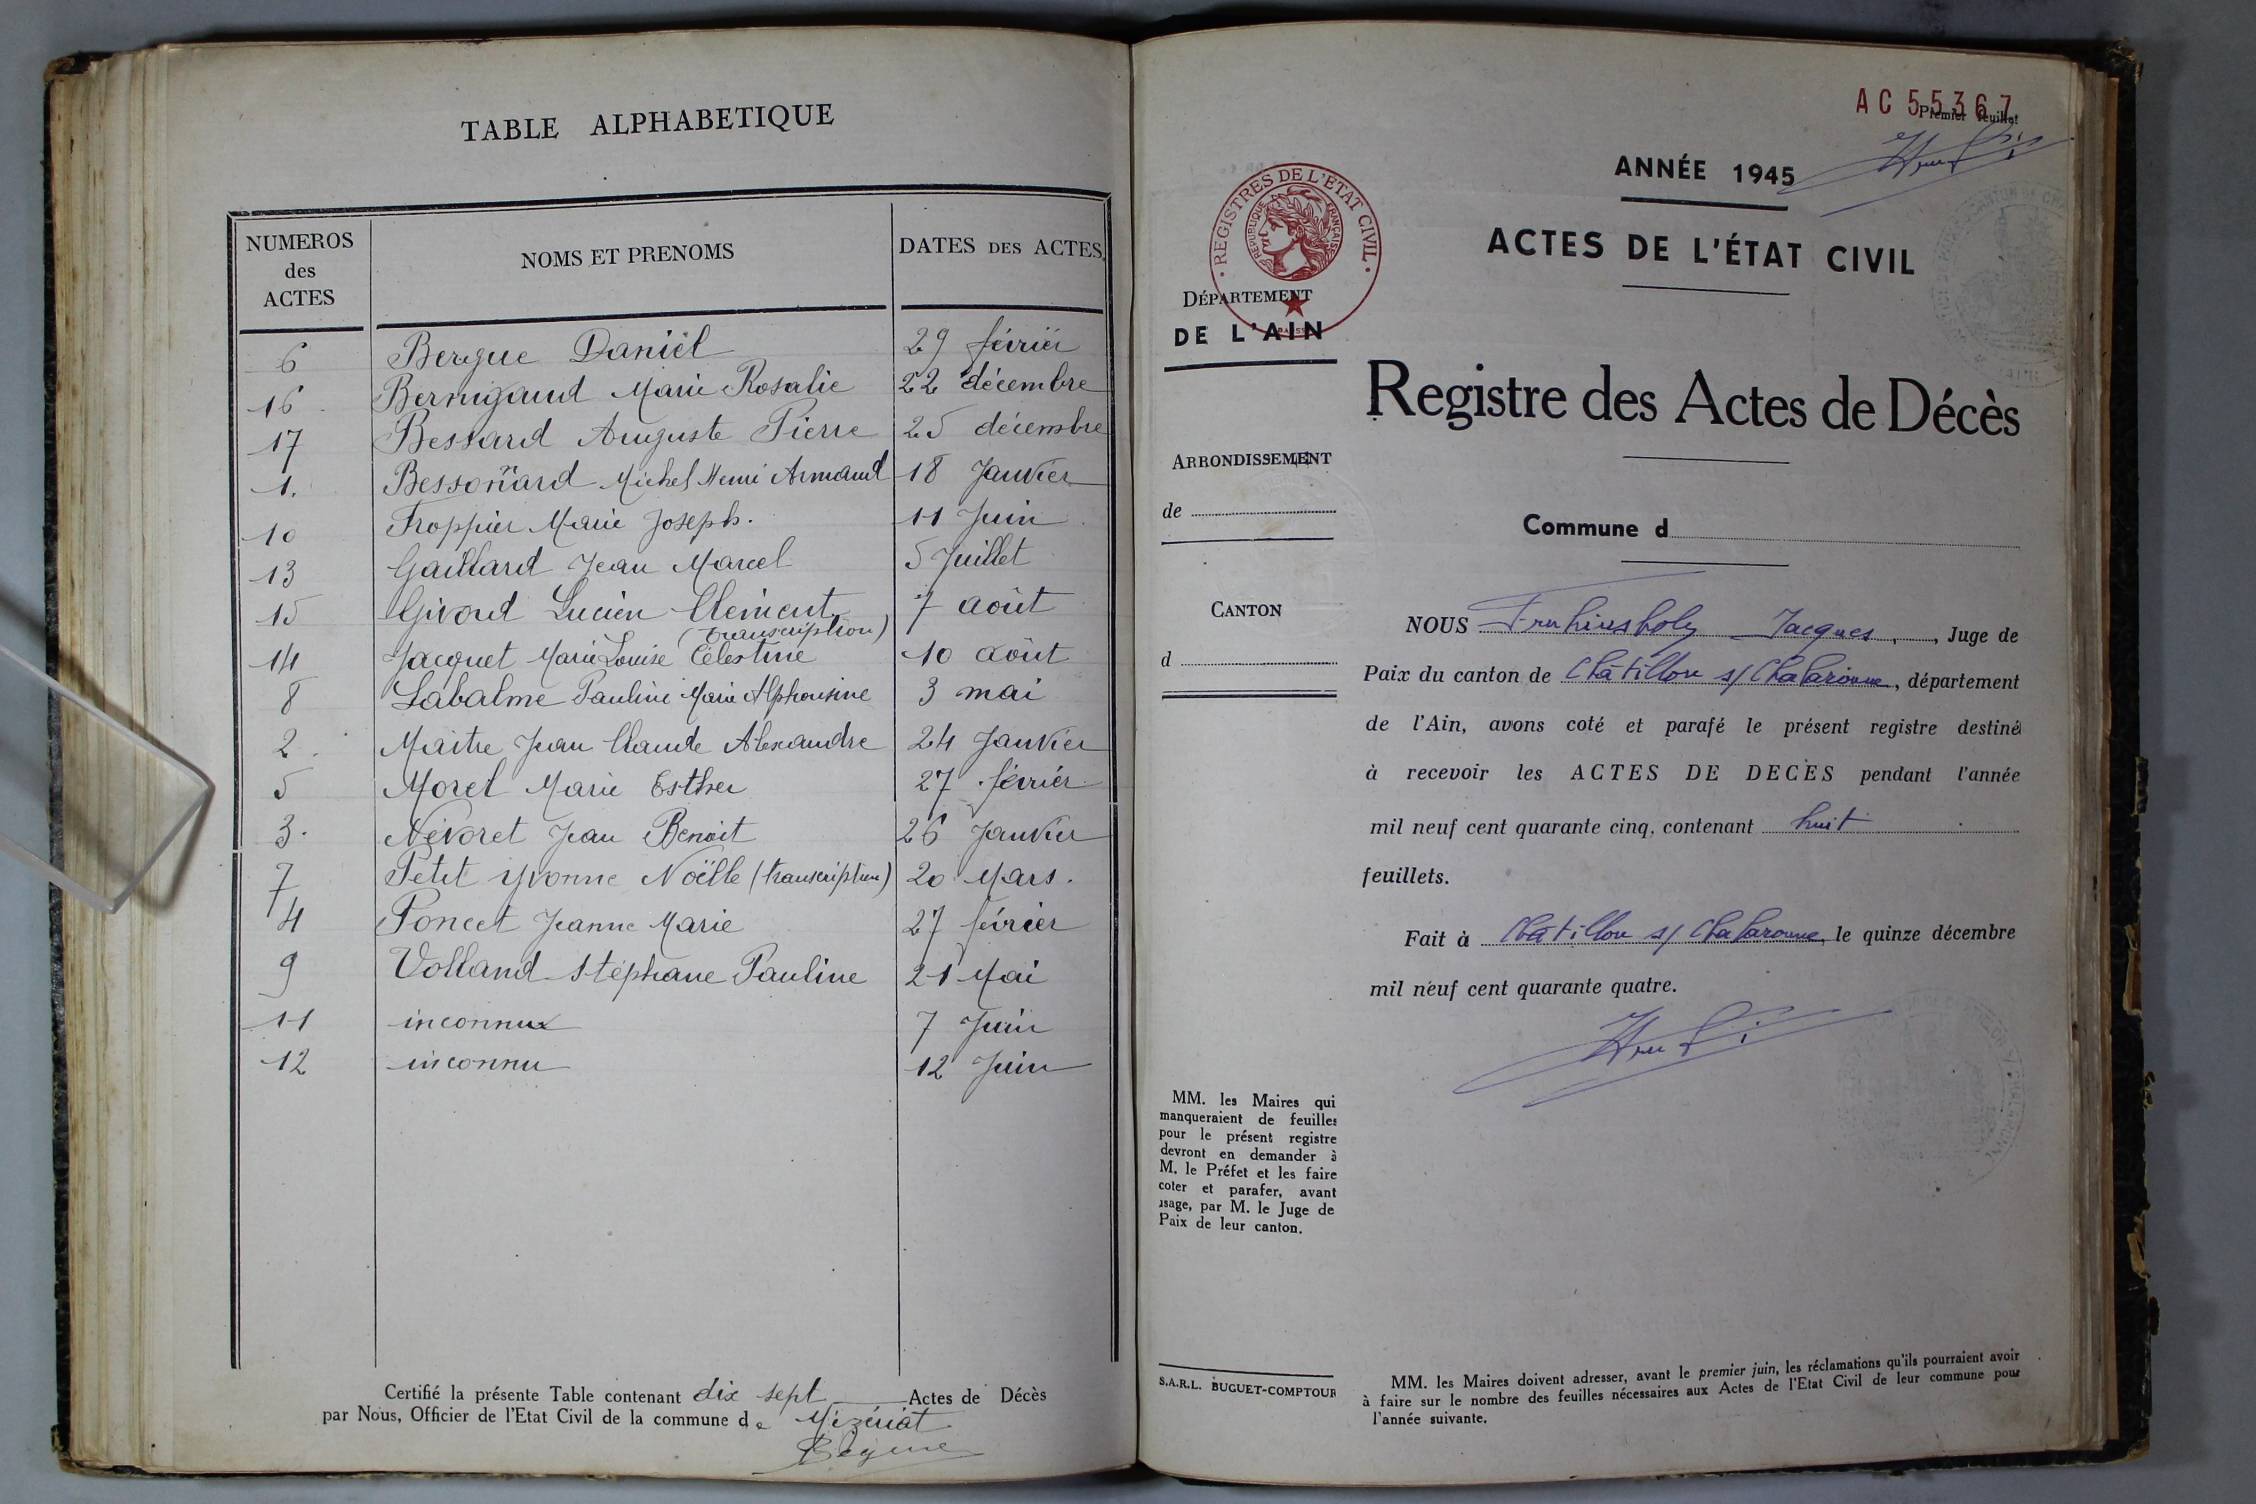 TABLE ALPHABETIQUE
NUMEROS des ACTES
NOMS ET PRENOMS
DATES DES ACTES
6 Bergue Daniel 29 février
16 Bernigaud Marie Rosalie 22 décembre
17 Bessard Auguste Pierre 25 décembre
1. Bessonnard Michel Henri Armand 18 Janvier
10 Froppier Marie Joseph. 11 Juin
13 Gaillard Jean Marcel 5 Juillet
15 Givord Lucien Clement 7 août
(transcription)
14 Jacquet Marie Louise Célestine 10 août
8 Labalme Pauline Marie Alphonsine 3 mai
2. Maitre Jean Claude Alexandre 24 Janvier
5 Morel Marie Esther 27 février
3. Névoret Jean Benoit 26 Janvier
7 Petit Yvonne Noëlle (transcription) 20 Mars.
4 Poncet Jeanne Marie 27 février
9 Volland Stéphane Pauline 21 Mai
11 inconnu 7 Juin
12 inconnu 12 Juin
Certifié la présente Table contenant dix sept Actes de Décès
par Nous, Officier de l'Etat Civil de la commune de Mézériat
AC 55367
Premier feuillet
ANNÉE 1945
ACTES DE L'ÉTAT CIVIL
REGISTRES DE L'ETAT CIVIL
REPUBLIQUE FRANÇAISE
DÉPARTEMENT
DE L'AIN
Registre des Actes de Décès
ARRONDISSEMENT
de
Commune d
CANTON
d
NOUS Jacques, Juge de
Paix du canton de Châtillon s/ Chalaronne, département
de l'Ain, avons coté et parafé le présent registre destiné
à recevoir les ACTES DE DECÈS pendant l'année
mil neuf cent quarante cinq, contenant huit
feuillets.
Fait à Châtillon s/ Chalaronne, le quinze décembre
mil neuf cent quarante quatre.
MM. les Maires qui
manqueraient de feuilles
pour le présent registre
devront en demander à
M. le Préfet et les faire
coter et parafer, avant
usage, par M. le Juge de
Paix de leur canton.
S.A.R.L. BUGUET-COMPTOUR
MM. les Maires doivent adresser, avant le premier juin, les réclamations qu'ils pourraient avoir
à faire sur le nombre des feuilles nécessaires aux Actes de l'Etat Civil de leur commune pour
l'année suivante.